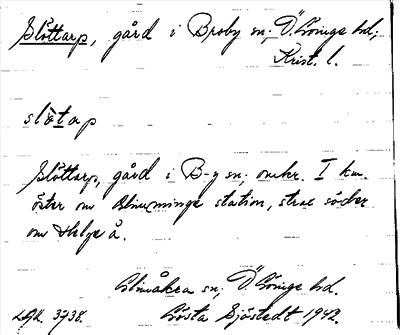 Slåttarp, gård i Broby sn; Ö. Göinge hd;
Krist. l.
slåtap
Slåttarp, gård i B-y sn, omkr. 1 km.
öster om Glimminge station, strax söder
om Helge å.
Glimåkra sn; Ö. Göinge hd.
LGA. 3738. Gösta Sjöstedt 1942.